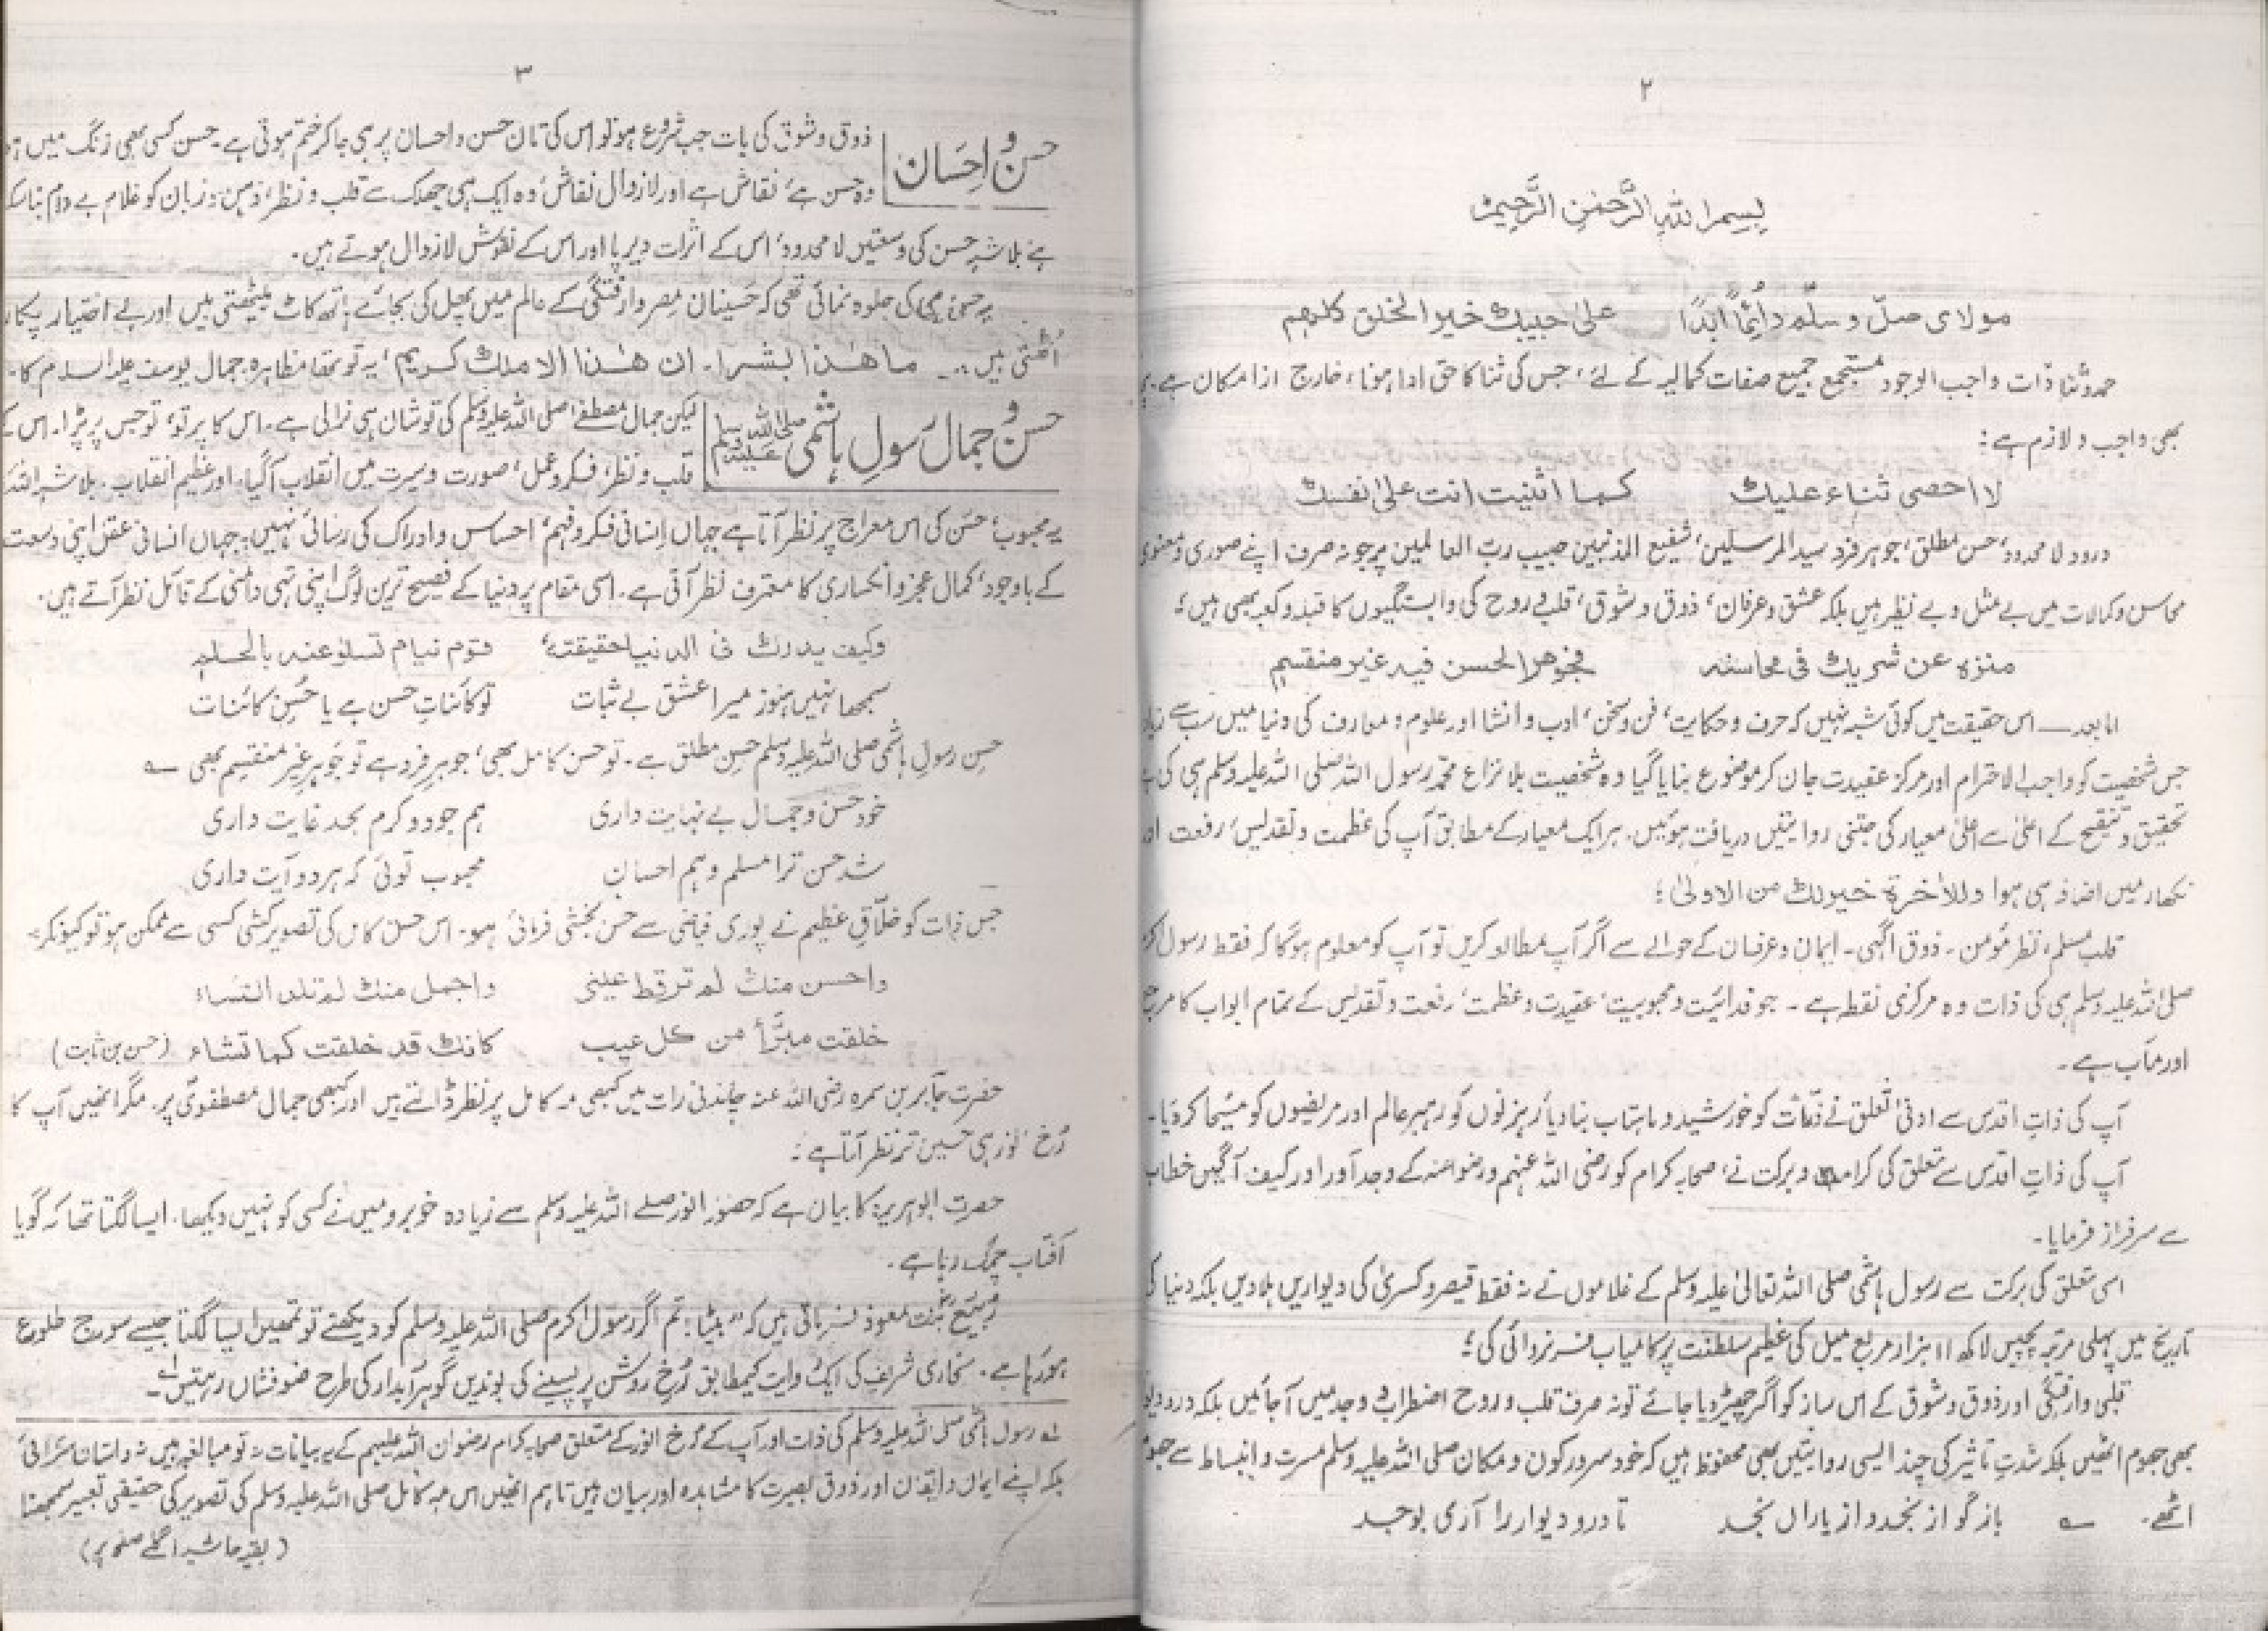 ۲
بسم اللہ الرحمٰن الرحیم
مولای صلّ وسلّم دائمًا ابدًا علیٰ حبیبک خیر الخلق کلهم
حمد و ثنا ذات واجب الوجود مستجمع جمیع صفات کمالیہ کے لئے، جس کی ثنا کا حق ادا ہونا، خارج از امکان ہے۔
بھی واجب و لازم ہے:
لا احصی ثناء علیک کما اثنیت انت علیٰ نفسک
درود لا محدود، حسن مطلق، جوہر فرد سید المرسلین، شفیع المذنبین حبیب ربّ العالمین پر جو نہ صرف اپنے صوری و معنوی
محاسن و کمالات میں بے مثل و بے نظیر ہیں بلکہ عشق و عرفان، ذوق و شوق، قلب و روح کی وابستگیوں کا قبلہ و کعبہ بھی ہیں؛
منزہ عن شریک فی محاسنہ فجوهر الحسن فیہ غیر منقسم
اما بعد — اس حقیقت میں کوئی شبہ نہیں کہ حرف و حکایت، فن و سخن، ادب و انشا اور علوم و معارف کی دنیا میں سب سے زیاد
جس شخصیت کو واجب الاحترام اور مرکز عقیدت جان کر موضوع بنایا گیا وہ شخصیت بلا نزاع محمد رسول اللہ صلی اللہ علیہ وسلم ہی کی
تحقیق و تنقیح کے اعلیٰ سے اعلیٰ معیار کی جتنی روایتیں دریافت ہوئیں۔ ہر ایک معیار کے مطابق آپ کی عظمت و تقدیس، رفعت اور
نکھار میں اضافہ ہی ہوا وللاٰخرة خیر لک من الاولیٰ؛
قلب مسلم، نظر مؤمن۔ ذوق آگہی۔ ایمان و عرفان کے حوالے سے اگر آپ مطالعہ کریں تو آپ کو معلوم ہوگا کہ فقط رسول اکرم
صلی اللہ علیہ وسلم ہی کی ذات وہ مرکزی نقطہ ہے۔ جو فدائیت و محبوبیت، عقیدت و عظمت، رفعت و تقدیس کے تمام ابواب کا مرجع
اور مآب ہے۔
آپ کی ذاتِ اقدس سے ادنیٰ تعلق نے ذرّات کو خورشید و ماہتاب بنا دیا، رہزنوں کو رہبرِ عالم اور مریضوں کو مسیحا کر دیا۔
آپ کی ذاتِ اقدس سے تعلق کی کرامت و برکت نے، صحابہ کرام کو رضی اللہ عنہم و رضوا عنہ کے وجد آور اور کیف آگیں خطاب
سے سرفراز فرمایا۔
اسی تعلق کی برکت سے رسول ہاشمی صلی اللہ تعالیٰ علیہ وسلم کے غلاموں نے نہ فقط قیصر و کسریٰ کی دیواریں ہلا دیں بلکہ دنیا کی
تاریخ میں پہلی مرتبہ پچیس لاکھ ۱۱ ہزار مربع میل کی عظیم سلطنت پر کامیاب فرمانروائی کی؛
قلبی وارفتگی اور ذوق و شوق کے اس ساز کو اگر چھیڑ دیا جائے تو نہ صرف قلب و روح اضطراب و وجد میں آجائیں بلکہ در و دیوار
بھی جھوم اٹھیں بلکہ شدتِ تاثیر کی چند ایسی روایتیں بھی محفوظ ہیں کہ خود سرور کون و مکان صلی اللہ علیہ وسلم مسرت و انبساط سے جھوم
اٹھے۔ ؎ باز گو از نجد و از یاران نجد تا در و دیوار را آری بوجد
۳
حسن و احسان
ذوق و شوق کی بات جب شروع ہو تو اس کی تان حسن و احسان پر ہی جا کر ختم ہوتی ہے۔ حسن کسی بھی رنگ میں ہو
وہ حسن ہے، نقاش ہے اور لازوال نقاش، وہ ایک ہی جھلک سے قلب و نظر، ذہن و زبان کو غلام بے دام بنا سکتا
ہے بلا شبہ حسن کی وسعتیں لا محدود، اس کے اثرات دیرپا اور اس کے نقوش لازوال ہوتے ہیں۔
یہ حسن ہی کی جلوہ نمائی تھی کہ حسینان مصر وارفتگی کے عالم میں پھل کی بجائے ہاتھ کاٹ بیٹھتی ہیں اور بے اختیار پکار
اُٹھتی ہیں۔ ما هٰذا بشرا۔ ان هٰذا الا ملک کریم، یہ تو تھا مظاہرہ جمال یوسف علیہ السلام کا۔
حسن و جمال رسولِ ہاشمی صلی اللہ علیہ وسلم
لیکن جمال مصطفےٰ صلی اللہ علیہ وسلم کی تو شان ہی نرالی ہے۔ اس کا پرتو، تو جس پر پڑا۔ اس کے
قلب و نظر، فکر و عمل، صورت و سیرت میں انقلاب آگیا۔ اور عظیم انقلاب۔ بلا شبہ اللہ کا
یہ محبوب، حسن کی اس معراج پر نظر آتا ہے جہاں انسانی فکر و فہم، احساس و ادراک کی رسائی نہیں۔ جہاں انسانی عقل اپنی وسعت
کے باوجود، کمال عجز و انکساری کا معترف نظر آتی ہے۔ اسی مقام پر دنیا کے فصیح ترین لوگ اپنی تہی دامنی کے قائل نظر آتے ہیں۔
وکیف یدرک فی الدنیا حقیقتہ قوم نیام تسلّوا عنہ بالحلم
سمجھا نہیں ہنوز میرا عشق بے ثبات تو کائناتِ حسن ہے یا حُسنِ کائنات
حسنِ رسولِ ہاشمی صلی اللہ علیہ وسلم حسنِ مطلق ہے۔ تو حسن کامل بھی، جوہر فرد ہے تو جوہرِ غیر منقسم بھی ؎
خود حسن و جمال بے نہایت داری ہم جود و کرم بحد غایت داری
شد حسن ترا مسلم و ہم احسان محبوب توئی کہ ہر دو آیت داری
جس ذات کو خلّاقِ عظیم نے پوری فیاضی سے حسن بخشی فرمائی ہو۔ اس حسن کامل کی تصویر کشی کسی سے ممکن ہو تو کیونکر:
واحسن منک لم تر قط عینی واجمل منک لم تلد النساء
خلقت مبرّأ من کل عیب کانک قد خلقت کما تشاء (حسن بن ثابت)
حضرت جابر بن سمرہ رضی اللہ عنہ چاندنی رات میں کبھی مہ کامل پر نظر ڈالتے ہیں اور کبھی جمال مصطفویؐ پر۔ مگر انھیں آپ کا
رُخ انور ہی حسین تر نظر آتا ہے:
حضرت ابو ہریرہؓ کا بیان ہے کہ حضور انور صلے اللہ علیہ وسلم سے زیادہ خوبرو میں نے کسی کو نہیں دیکھا۔ ایسا لگتا تھا کہ گویا
آفتاب چمک رہا ہے۔
رُبیّع بنت معوذ فرماتی ہیں کہ "بیٹا! تم اگر رسول اکرم صلی اللہ علیہ وسلم کو دیکھتے تو تمھیں ایسا لگتا جیسے سورج طلوع
ہو رہا ہے۔ بخاری شریف کی ایک روایت کیمطابق رُخ روشن پر پسینے کی بوندیں گوہرِ آبدار کی طرح ضوفشاں رہتیں لہ۔
لہ رسول ہاشمی صلی اللہ علیہ وسلم کی ذات اور آپ کے رُخ انور کے متعلق صحابہ کرام رضوان اللہ علیہم کے یہ بیانات نہ تو مبالغہ ہیں نہ داستان سرائی
بلکہ اپنے ایمان و ایقان اور ذوق بصیرت کا مشاہدہ اور بیان ہیں تاہم انھیں اس مہ کامل صلی اللہ علیہ وسلم کی تصویر کی حقیقی تعبیر سمجھنا
(بقیہ حاشیہ اگلے صفحہ پر)